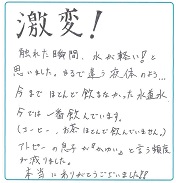 激変！
触れた瞬間、水が軽い！と
思いました。まるで違う液体のよう…
今までほとんど飲まなかった水道水
今では一番飲んでいます。
（コーヒー、お茶ほとんど飲んでいません。）
アトピーの息子が“かゆい”と言う頻度
が減りました。
本当にありがとうございます!!